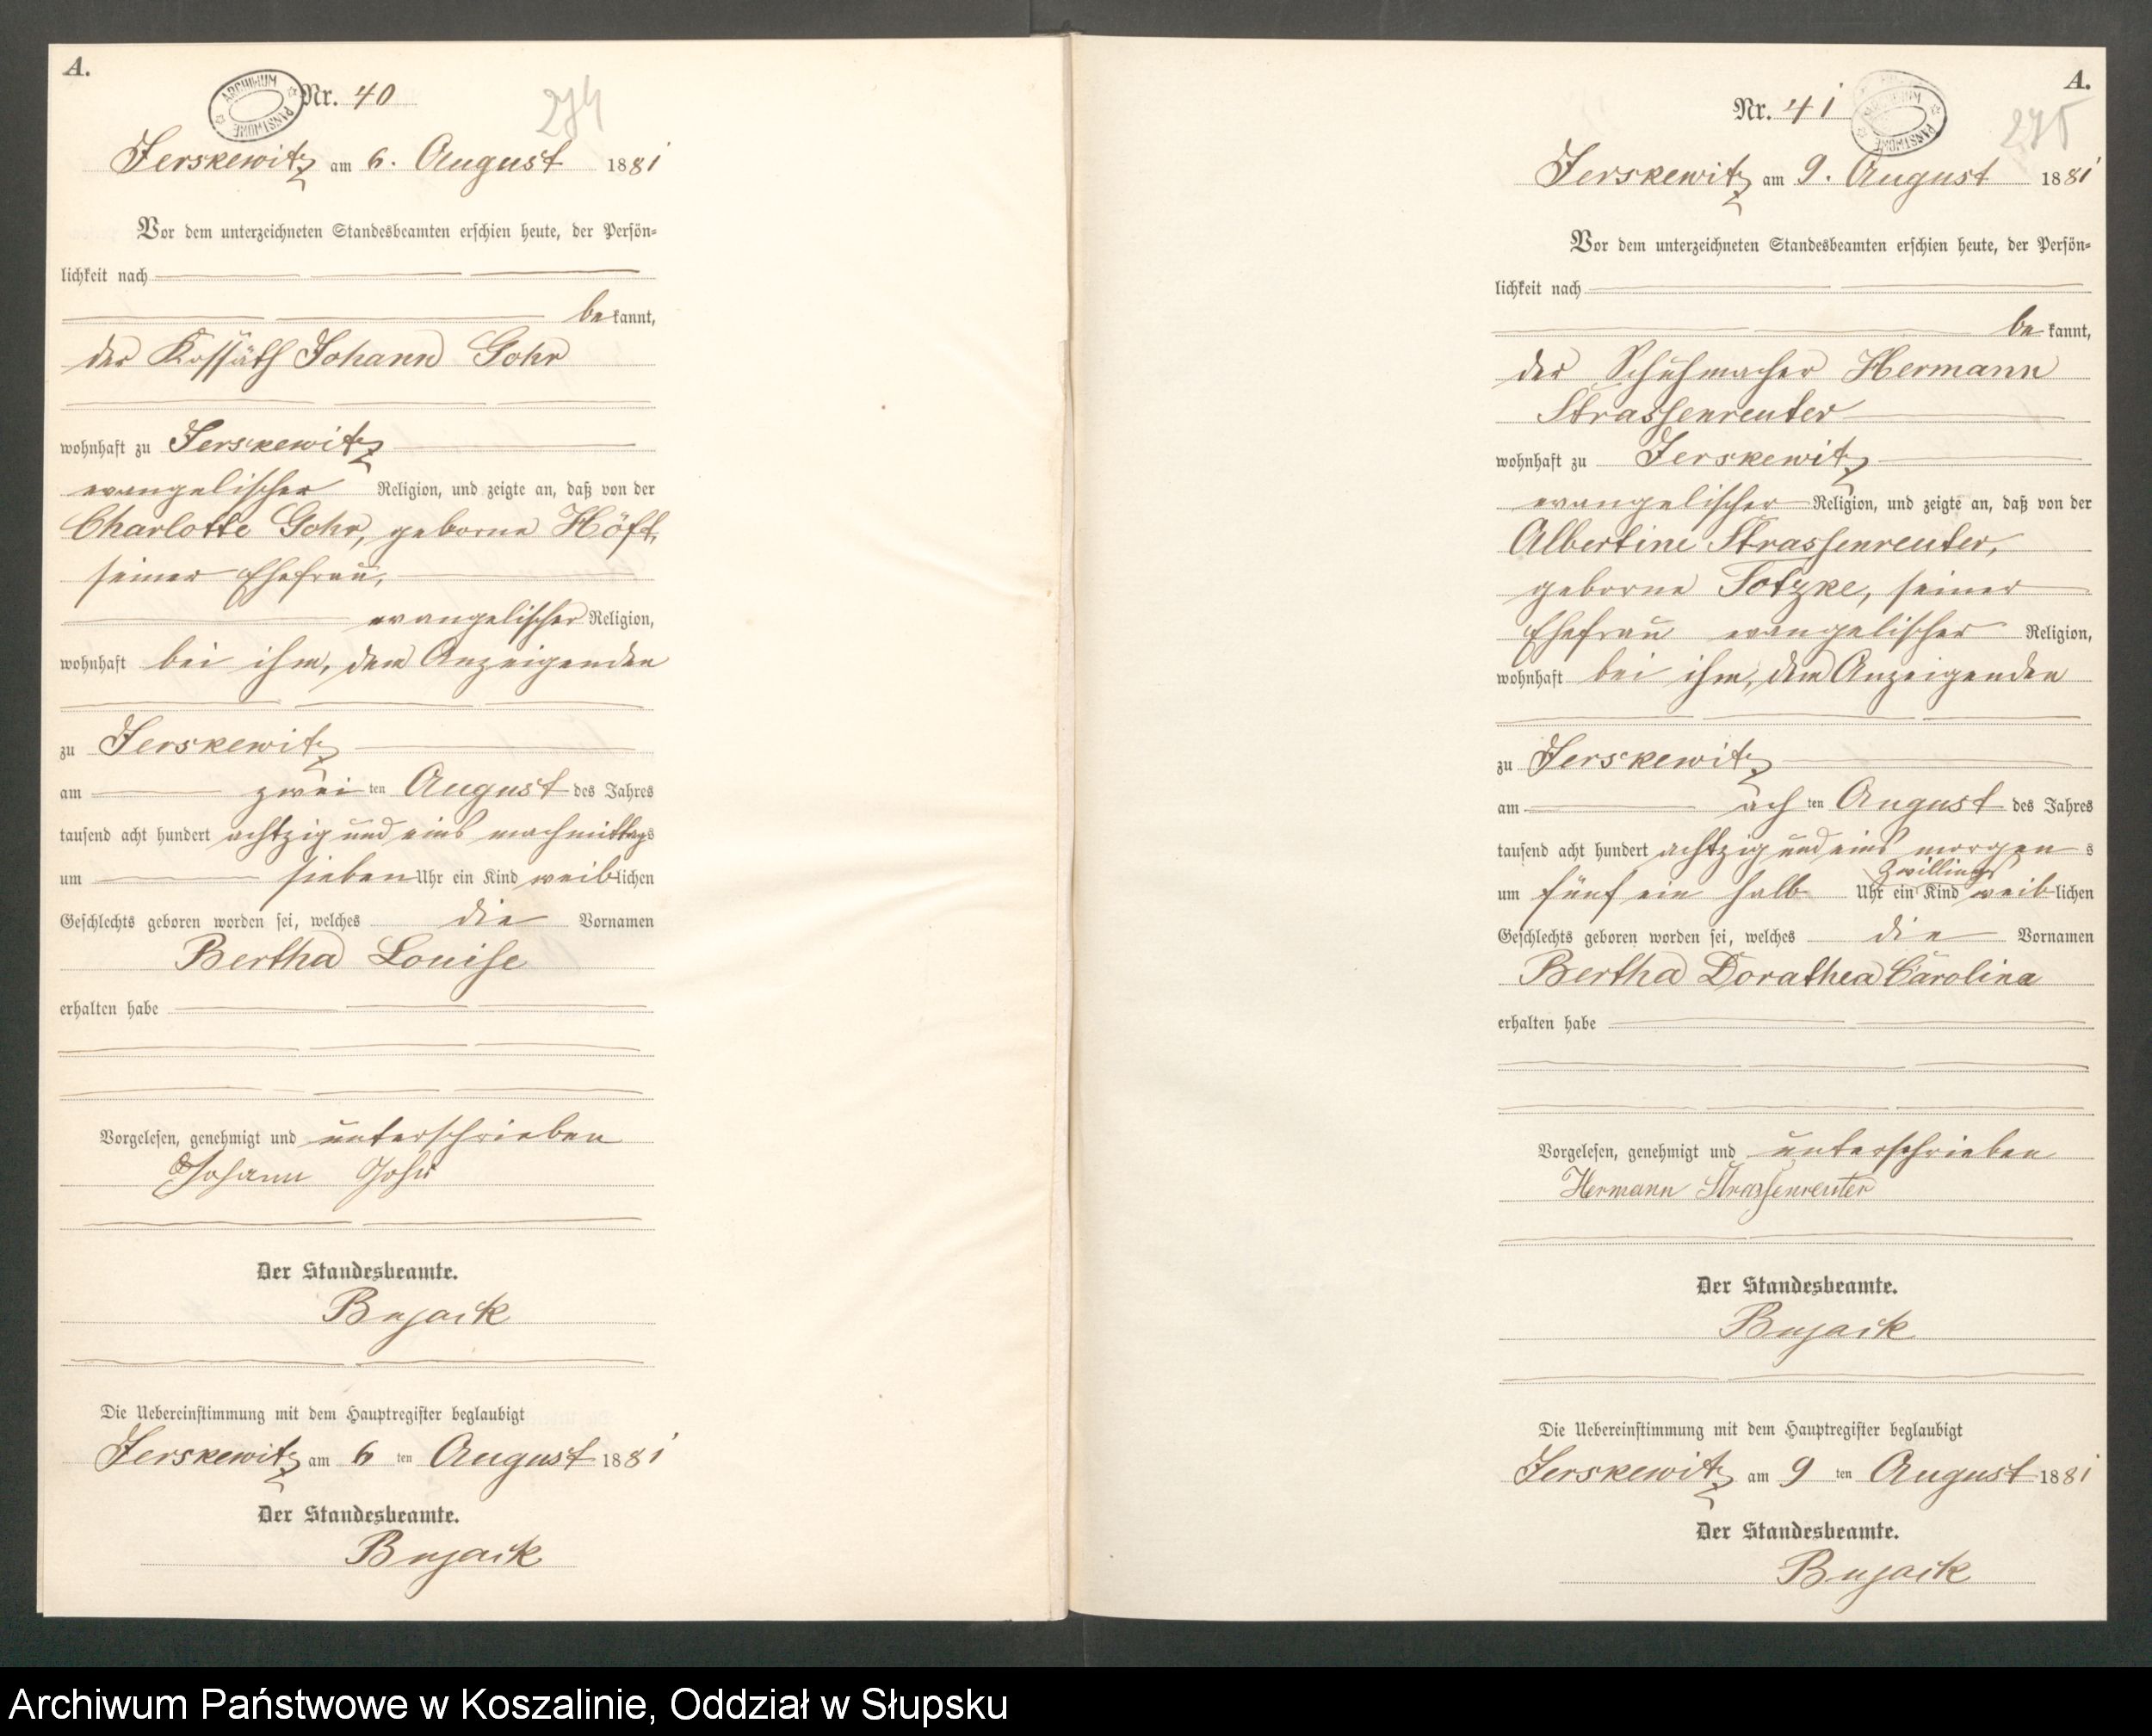 A.
ARCHIWUM PAŃSTWOWE
Nr. 40
274
Jerskewitz am 6. August 1881
Vor dem unterzeichneten Standesbeamten erschien heute, der Persön=
lichkeit nach
bekannt,
der Kossäth Johann Gohr
wohnhaft zu Jerskewitz
evangelischer Religion, und zeigte an, daß von der
Charlotte Gohr, geborne Höft,
seiner Ehefrau,
evangelischer Religion,
wohnhaft bei ihm, dem Anzeigenden
zu Jerskewitz
am zweiten August des Jahres
tausend acht hundert achtzig und eins nachmittags
um sieben Uhr ein Kind weiblichen
Geschlechts geboren worden sei, welches die Vornamen
Bertha Louise
erhalten habe
Vorgelesen, genehmigt und unterschrieben
Johann Gohr
Der Standesbeamte.
Bujack
Die Uebereinstimmung mit dem Hauptregister beglaubigt
Jerskewitz am 6 ten August 1881
Der Standesbeamte.
Bujack
A.
ARCHIWUM PAŃSTWOWE
Nr. 41
275
Jerskewitz am 9. August 1881
Vor dem unterzeichneten Standesbeamten erschien heute, der Persön=
lichkeit nach
bekannt,
der Schuhmacher Hermann
Strassenreuter
wohnhaft zu Jerskewitz
evangelischer Religion, und zeigte an, daß von der
Albertine Strassenreuter,
geborne Totzke, seiner
Ehefrau evangelischer Religion,
wohnhaft bei ihm, dem Anzeigenden
zu Jerskewitz
am achten August des Jahres
tausend acht hundert achtzig und eins morgens
Zwillings
um fünf ein halb Uhr ein Kind weiblichen
Geschlechts geboren worden sei, welches die Vornamen
Bertha Dorathea Carolina
erhalten habe
Vorgelesen, genehmigt und unterschrieben
Hermann Strassenreuter
Der Standesbeamte.
Bujack
Die Uebereinstimmung mit dem Hauptregister beglaubigt
Jerskewitz am 9 ten August 1881
Der Standesbeamte.
Bujack
Archiwum Państwowe w Koszalinie, Oddział w Słupsku